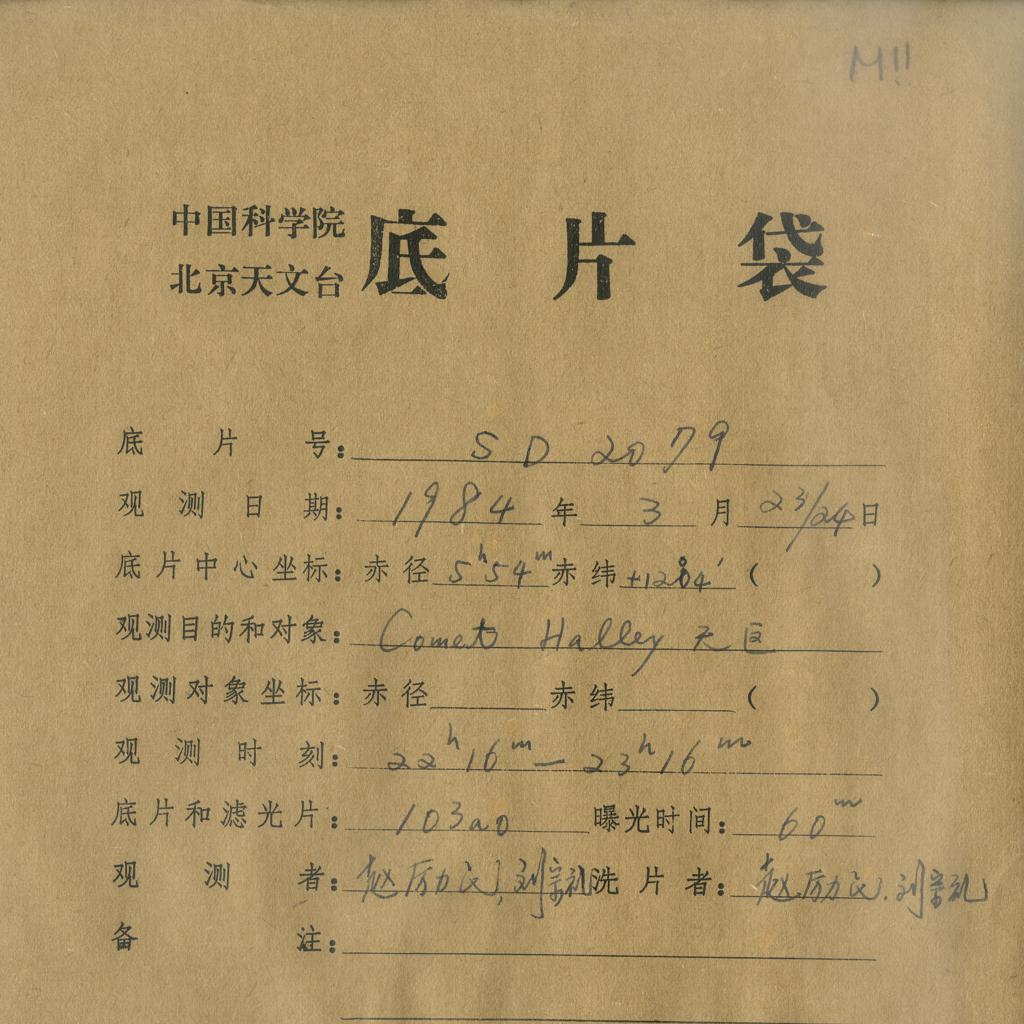 M!!
中国科学院
北京天文台 底片袋
底片号: SD 2079
观测日期: 1984 年 3 月 23/24 日
底片中心坐标: 赤径 5h54m 赤纬 +12°04′ ( )
观测目的和对象: Comet Halley 天区
观测对象坐标: 赤径 赤纬 ( )
观测时刻: 22h16m — 23h16m
底片和滤光片: 103aO 曝光时间: 60m
观测者: 赵厉民, 刘宗礼 洗片者: 赵厉民, 刘宗礼
备注: